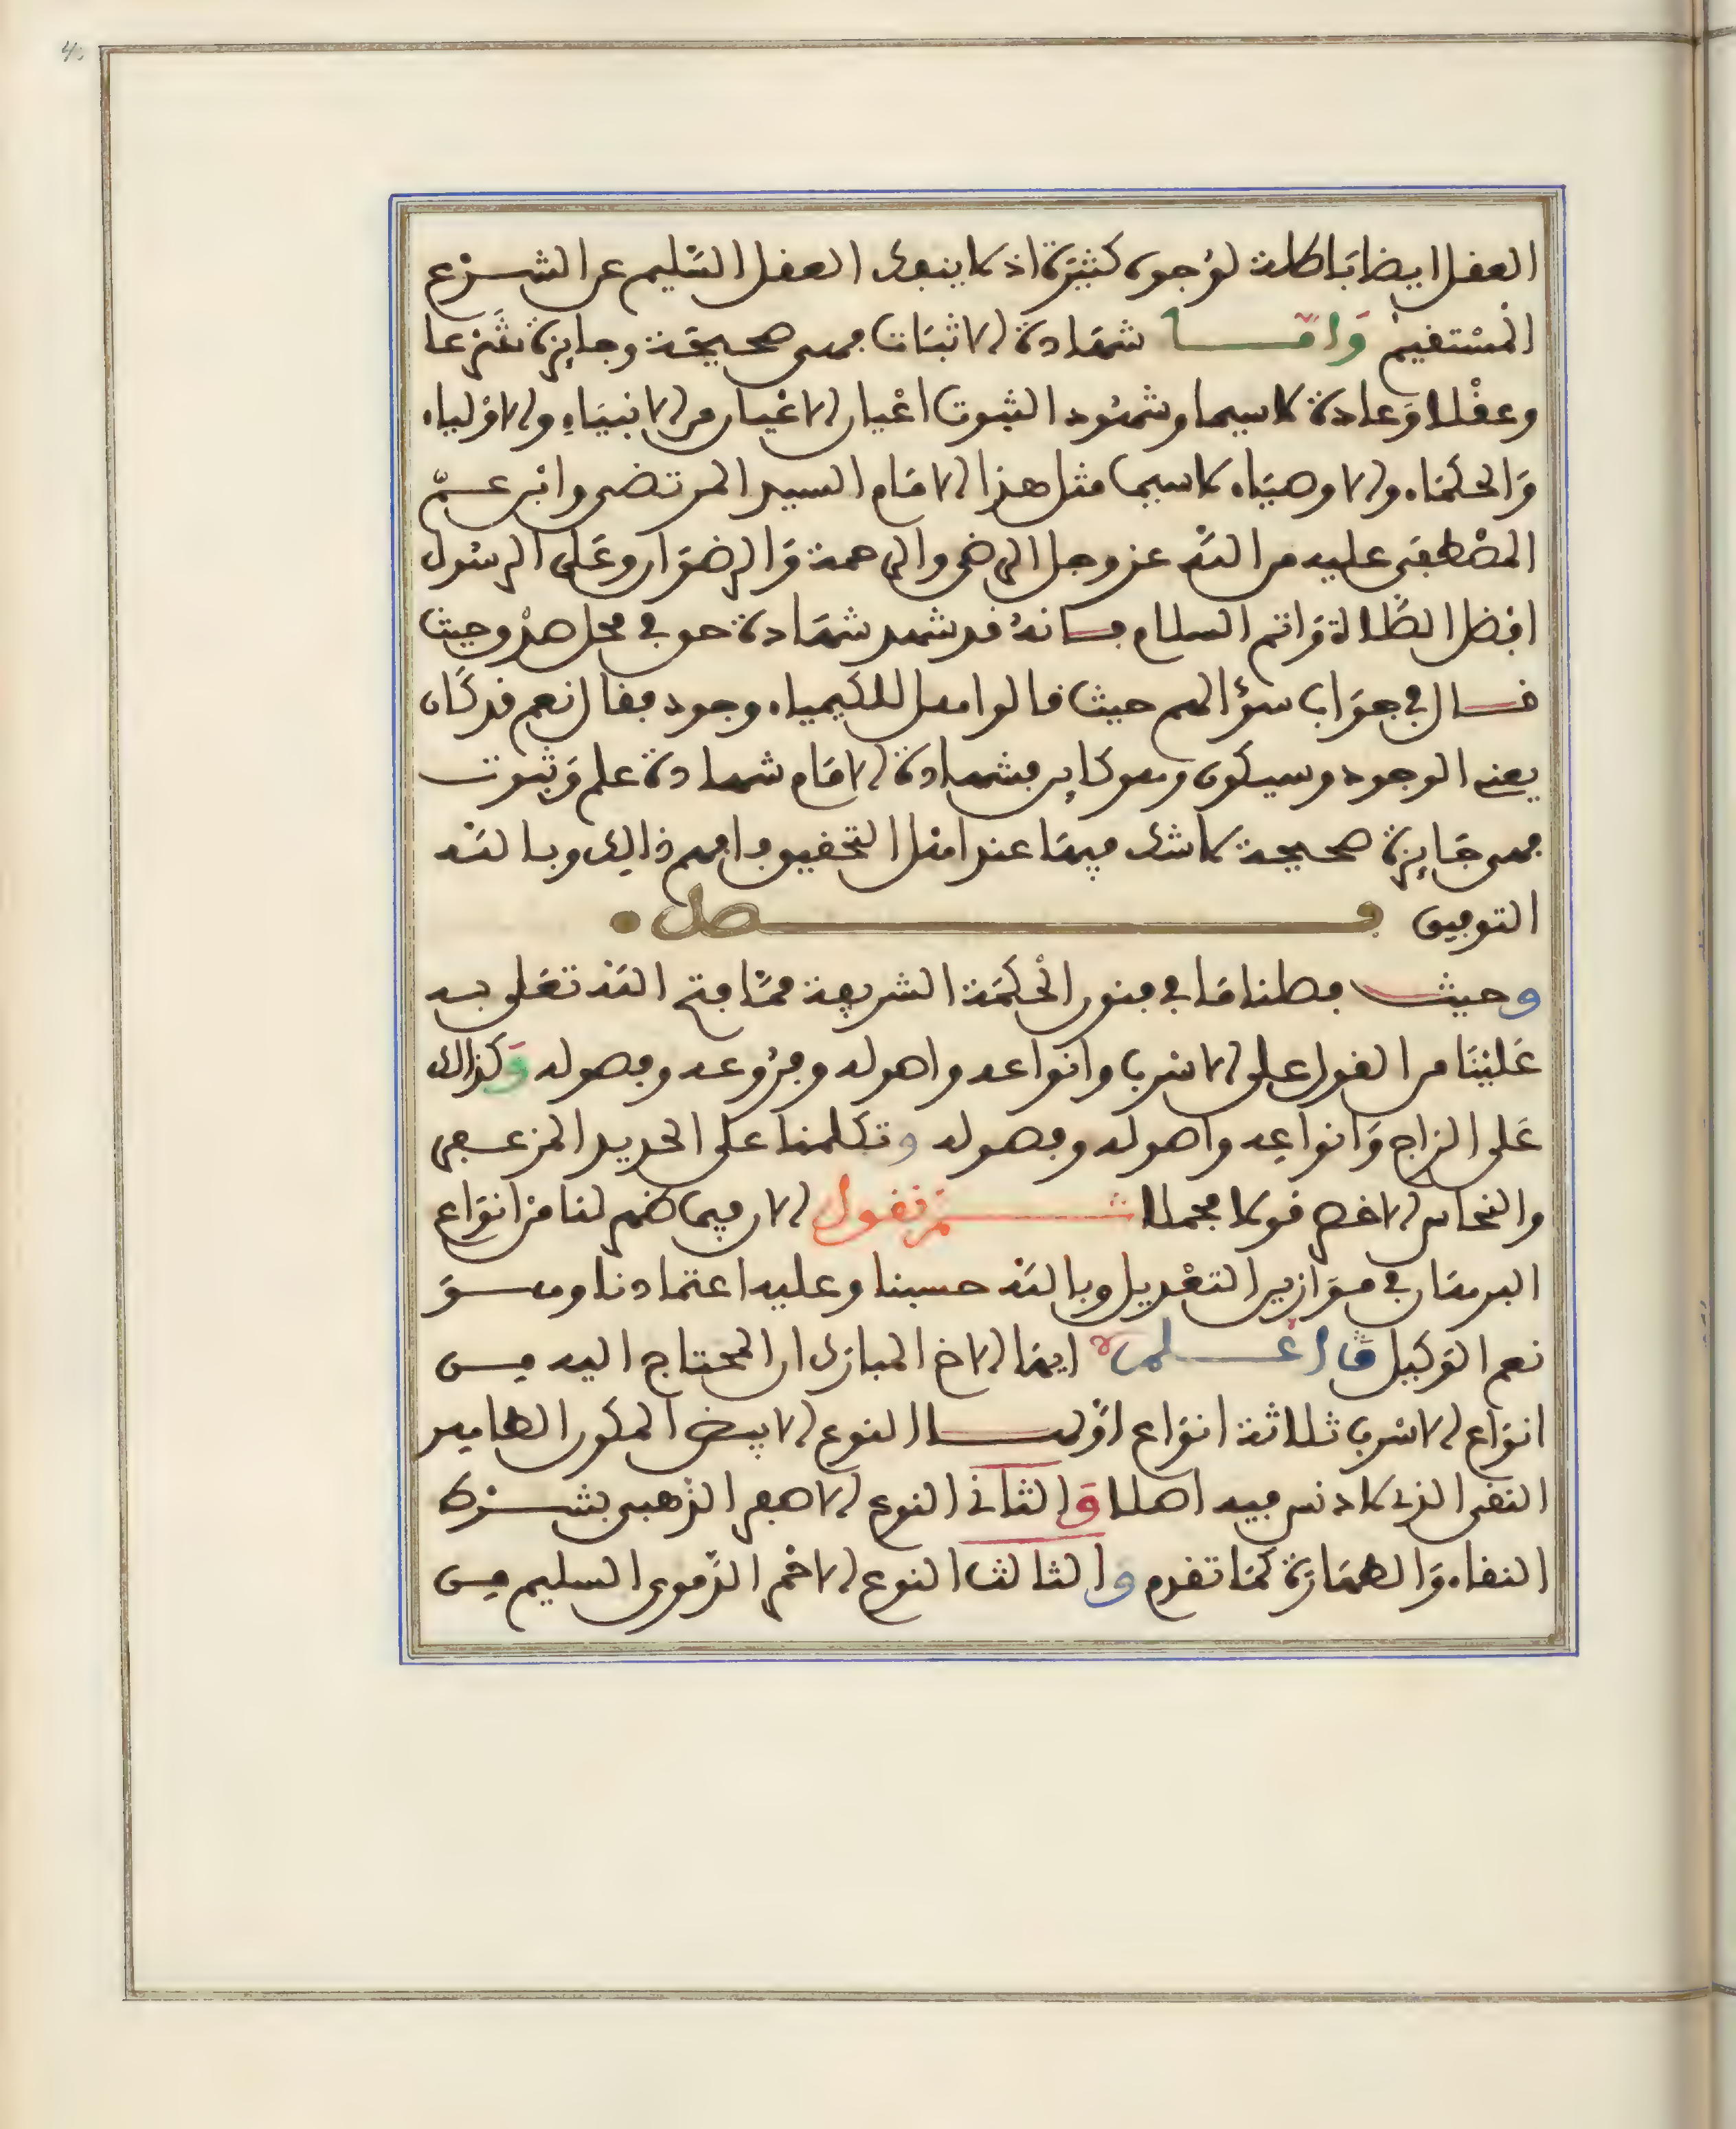 العقل ايضا باطلة لوجوه كثيرة اذ لا ينفك العقل السليم عن الشرع
المستقيم واما شهادة الاثبات فهى صحيحة وجايزة شرعا
وعقلا وعادة لاسيما وشهود الثبوت اعيان الاعيان من الانبياء والاولياء
والحكماء والاوصياء لاسيما مثل هذا الامام السيد المرتضى وابن عم
المصطفى عليه من الله عز وجل الرضى والرحمة والرضوان وعلى الرسول
افضل الصلاة واتم السلام فانه قد شهد شهادة حق في محل صدق وحيث
قال في جواب سؤالهم حيث قالوا هل للكيمياء وجود فقال نعم قد كان
يعنى الوجود وسيكون وهو كاين فشهادة الامام شهادة علم وثبوت
فهى جايزة صحيحة لا شك فيها عند اهل التحقيق فافهم ذالك وبالله
التوفيق فصل
وحيث فصلنا ما في فنون الحكمة الشريفة مما فتح الله تعلى به
علينا من القول على الاسرب وانواعه واصوله وفروعه وفصوله وكذالك
على الزاج وانواعه واصوله وفصوله وتكلمنا على الحديد المزعفر
والنحاس الاخضر قولا مجملا ثم نقول الان فيما ظهر لنا من انواع
البرهان في موازين التعديل وبالله حسبنا وعليه اعتمادنا وهو
نعم الوكيل فاعلم ايها الاخ المبارك ان المحتاج اليه من
انواع الاسرب ثلاثة انواع اولها النوع الابيض المكون الصابر
النقى الذى لا دنس فيه اصلا والثانى النوع الاصفر الذهبى بشرط
النقاء والطهارة كما تقدم والثالث النوع الاحمر الدموى السليم من